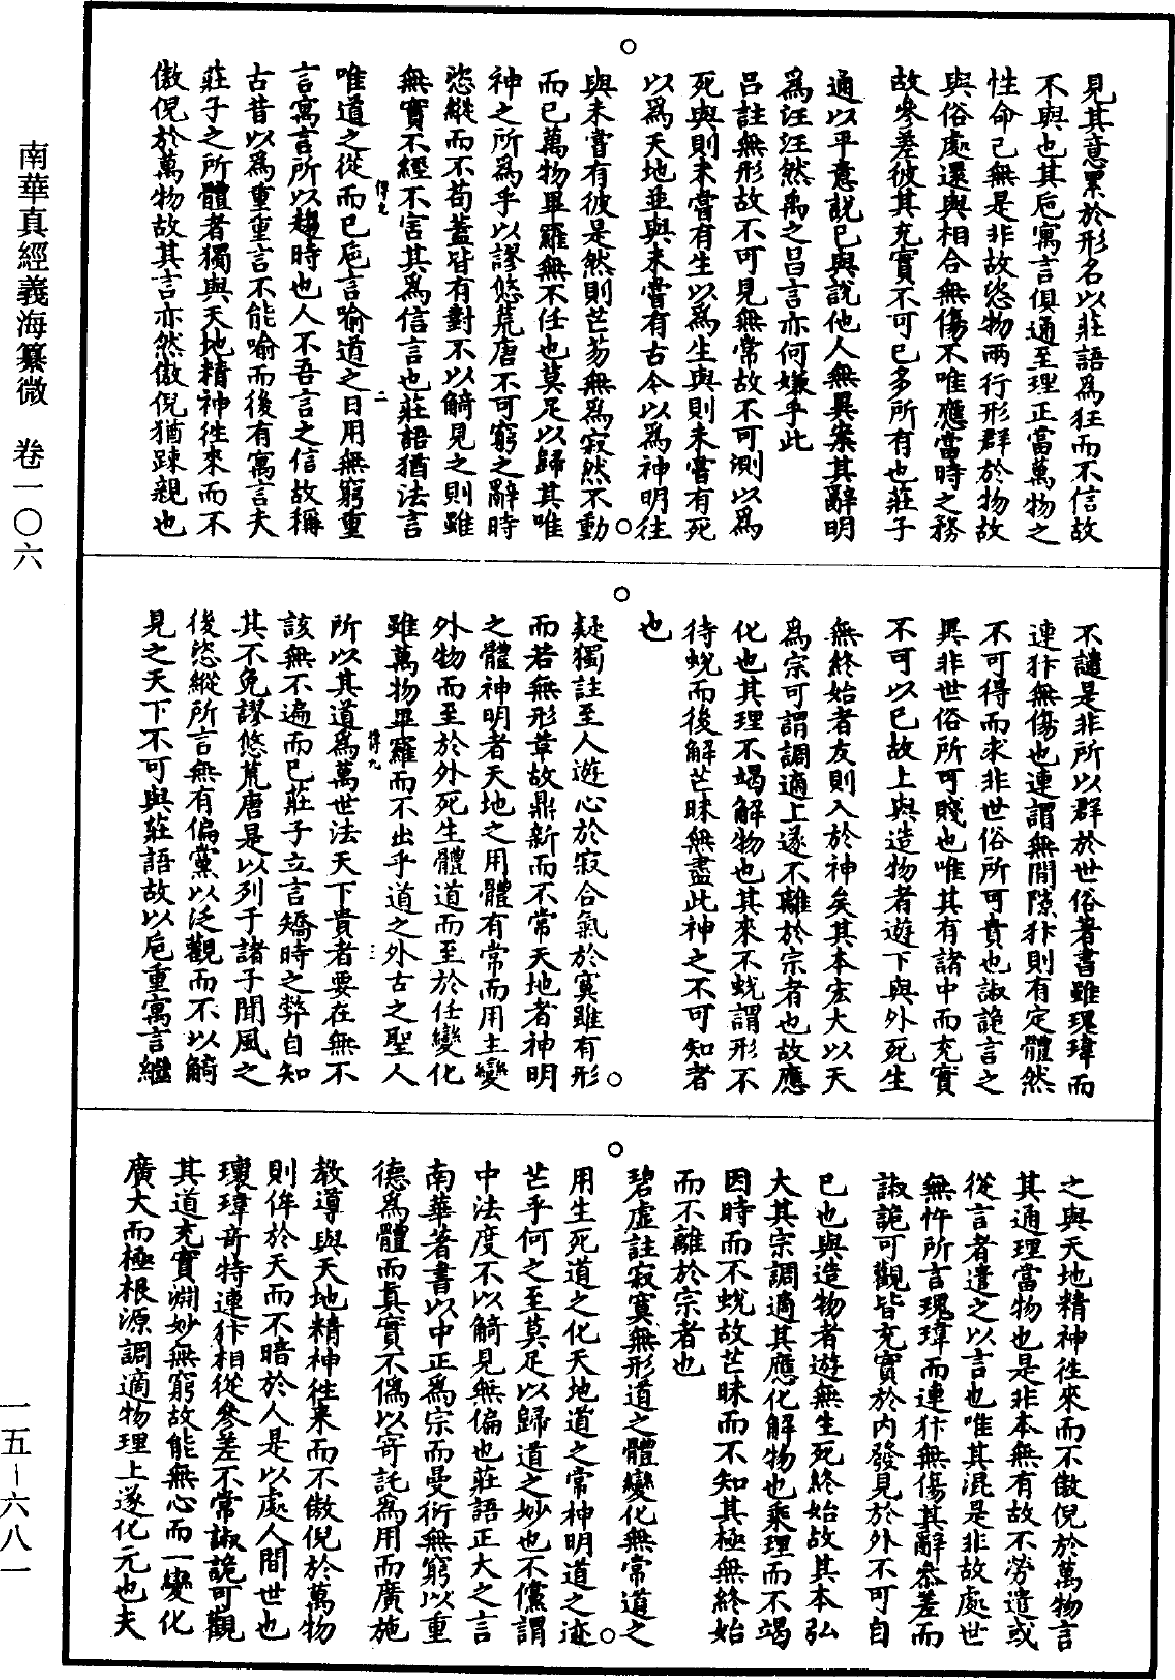 南華真經義海纂微　卷一〇六
一五–六八一
見其意累於形名以莊語爲狂而不信故
不與也其巵寓言俱通至理正當萬物之
性命己無是非故恣物兩行形群於物故
與俗處還與相合無傷不唯應當時之務
故參差彼其充實不可已多所有也莊子
通以平意說已與說他人無異案其辭明
爲汪汪然禹之昌言亦何嫌乎此
呂註無形故不可見無常故不可測以爲
死與則未嘗有生以爲生與則未嘗有死
以爲天地並與未嘗有古今以爲神明往
與未嘗有彼是然則芒芴無爲寂然不動
而已萬物畢羅無不任也莫足以歸其唯
神之所爲乎以謬悠荒唐不可窮之辭時
恣縱而不苟蓋皆有對不以觭見之則雖
無實不經不害其爲信言也莊語猶法言
唯道之從而已巵言喻道之日用無窮重
言寓言所以趨時也人不吾言之信故稱
古昔以爲重重言不能喻而後有寓言夫
莊子之所體者獨與天地精神徃來而不
傲倪於萬物故其言亦然傲倪猶踈親也
不譴是非所以群於世俗著書雖瓌瑋而
連犿無傷也連謂無間隙犿則有定體然
不可得而求非世俗所可貴也諔詭言之
異非世俗所可賤也唯其有諸中而充實
不可以已故上與造物者遊下與外死生
無終始者友則入於神矣其本宏大以天
爲宗可謂調適上遂不離於宗者也故應
化也其理不竭解物也其來不蛻謂形不
待蛻而後解芒昧無盡此神之不可知者
也
疑獨註至人遊心於寂合氣於寞雖有形
而若無形葦故鼎新而不常天地者神明
之體神明者天地之用體有常而用主變
外物而至於外死生體道而至於任變化
雖萬物畢羅而不出乎道之外古之聖人
所以其道爲萬世法天下貴者要在無不
該無不遍而已莊子立言矯時之弊自知
其不免謬悠荒唐是以列于諸子聞風之
後恣縱所言無有偏黨以泛觀而不以觭
見之天下不可與莊語故以巵重寓言繼
之與天地精神徃來而不傲倪於萬物言
其通理當物也是非本無有故不勞遣或
從言者遣之以言也唯其混是非故處世
無忤所言瓌瑋而連犿無傷其辭叅差而
諔詭可觀皆充實於內發見於外不可自
已也與造物者遊無生死終始故其本弘
大其宗調適其應化解物也乘理而不竭
因時而不蛻故芒昧而不知其極無終始
而不離於宗者也
碧虛註寂寞無形道之體變化無常道之
用生死道之化天地道之常神明道之迹
芒乎何之至莫足以歸道之妙也不儻謂
中法度不以觭見無偏也莊語正大之言
南華著書以中正爲宗而曼衍無窮以重
德爲體而真實不僞以寄託爲用而廣施
教導與天地精神徃来而不傲倪於萬物
則侔於天而不暗於人是以處人間世也
瓌瑋竒特連犿相從參差不常諔詭可觀
其道充實淵妙無窮故能無心而一變化
廣大而極根源調適物理上遂化元也夫